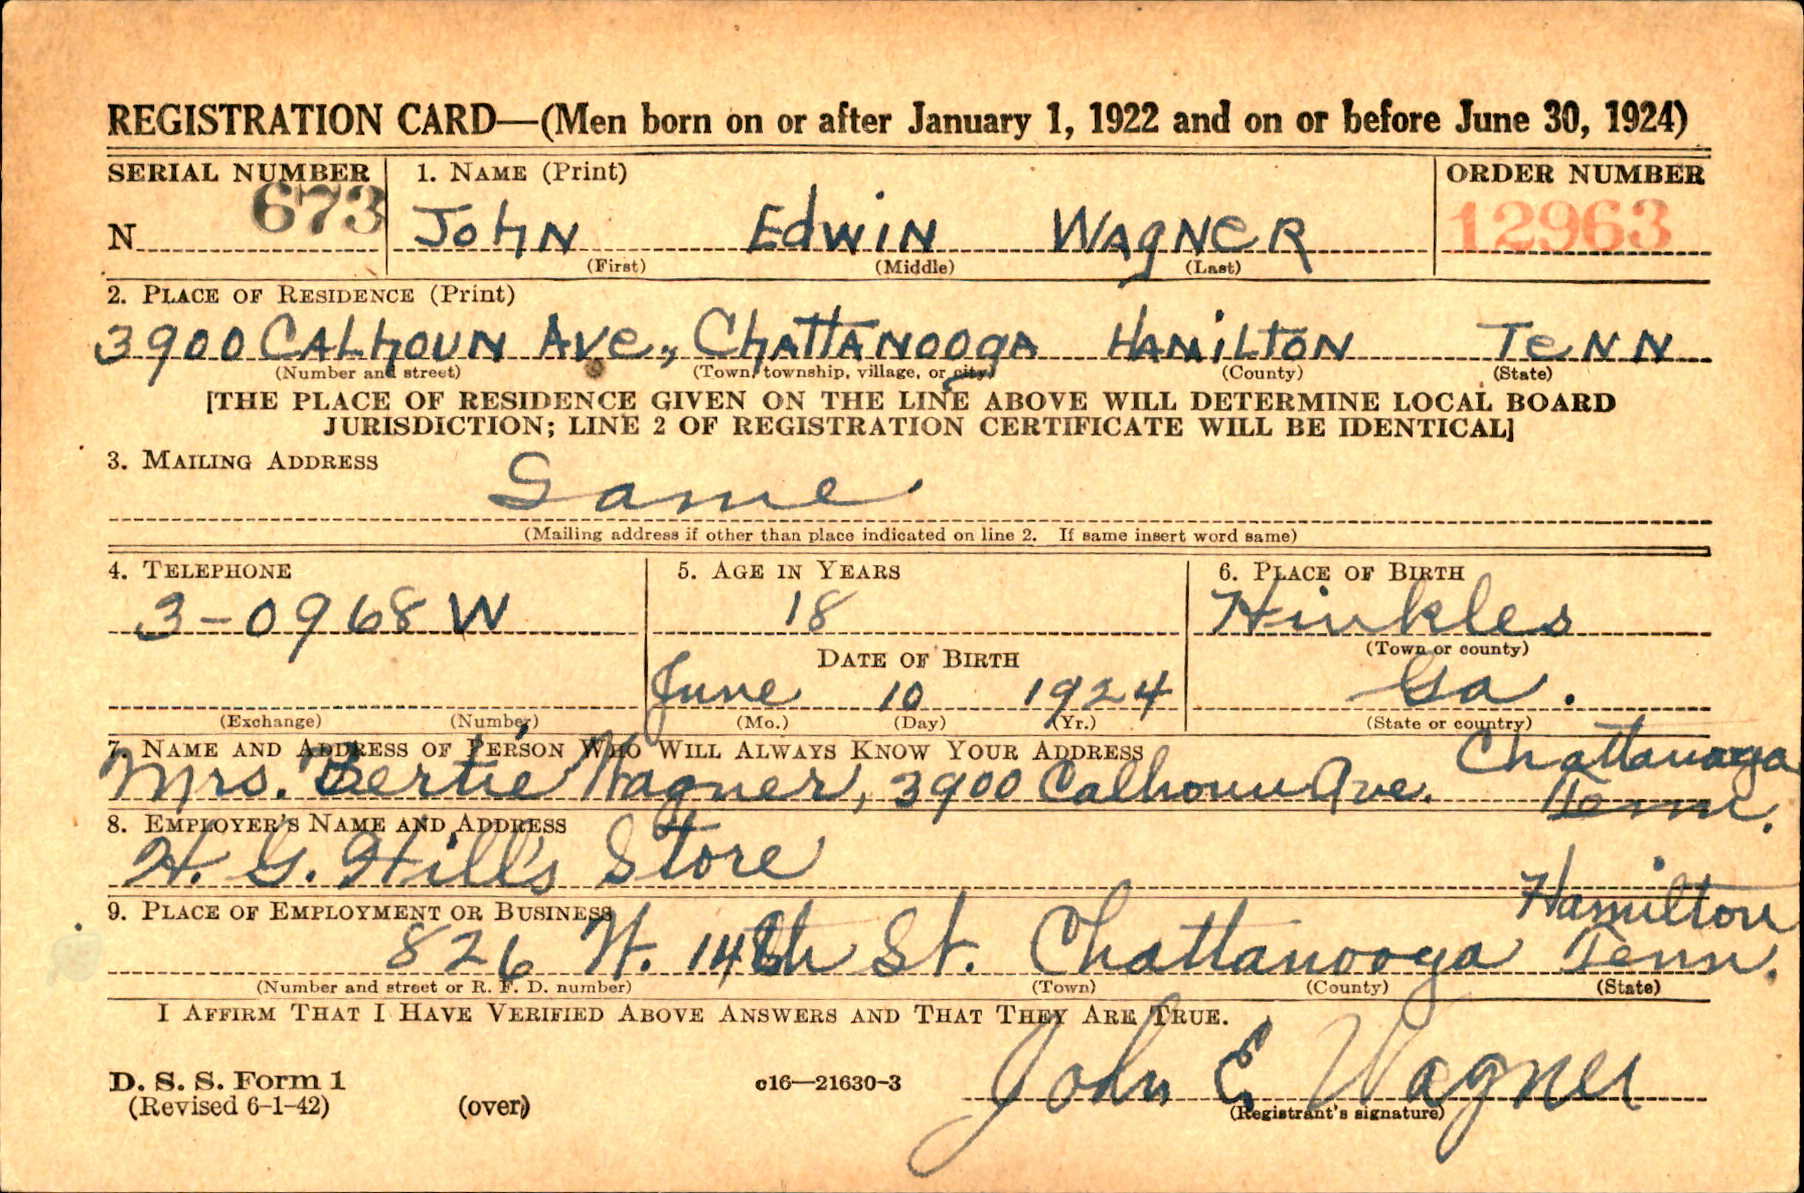 REGISTRATION CARD—(Men born on or after January 1, 1922 and on or before June 30, 1924)
SERIAL NUMBER 1. NAME (Print) ORDER NUMBER
N 673 JOHN EDWIN WAGNER 12963
(First) (Middle) (Last)
2. PLACE OF RESIDENCE (Print)
3900 CALHOUN AVE., CHATTANOOGA HAMILTON TENN
(Number and street) (Town, township, village, or city) (County) (State)
[THE PLACE OF RESIDENCE GIVEN ON THE LINE ABOVE WILL DETERMINE LOCAL BOARD
JURISDICTION; LINE 2 OF REGISTRATION CERTIFICATE WILL BE IDENTICAL]
3. MAILING ADDRESS
Same
(Mailing address if other than place indicated on line 2. If same insert word same)
4. TELEPHONE 5. AGE IN YEARS 6. PLACE OF BIRTH
3-0968 W 18 Hinkles
(Town or county)
DATE OF BIRTH
June 10 1924 Ga.
(Exchange) (Number) (Mo.) (Day) (Yr.) (State or country)
7. NAME AND ADDRESS OF PERSON WHO WILL ALWAYS KNOW YOUR ADDRESS
Mrs. Bertie Wagner, 3900 Calhoun Ave. Chattanooga Tenn.
8. EMPLOYER'S NAME AND ADDRESS
H. G. Hill's Store
9. PLACE OF EMPLOYMENT OR BUSINESS
826 W. 14th St. Chattanooga Hamilton Tenn.
(Number and street or R. F. D. number) (Town) (County) (State)
I AFFIRM THAT I HAVE VERIFIED ABOVE ANSWERS AND THAT THEY ARE TRUE.
John E Wagner
D. S. S. Form 1 c16—21630-3
(Revised 6-1-42) (over) (Registrant's signature)